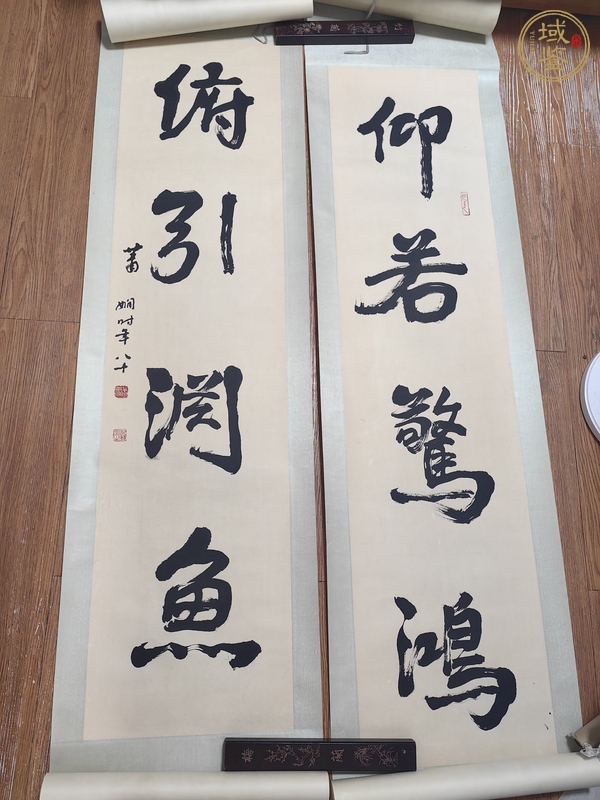 仰若驚鴻
俯引渊魚
萧嫻时年八十
域鉴